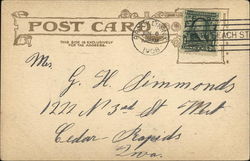 POST CARD
THIS SIDE IS EXCLUSIVELY
FOR THE ADDRESS.
1908
ACH ST
Mr.
G. H. Simmonds
1211 N 3rd St West
Cedar Rapids
Iowa.